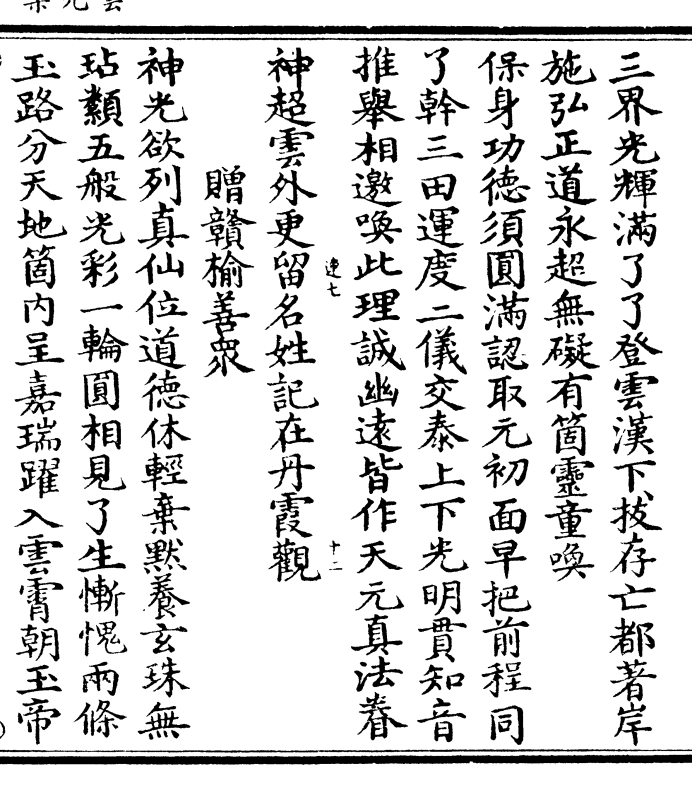 三界光輝滿了了登雲漢下拔存亡都著岸
施弘正道永超無礙有箇靈童喚
保身功德須圓滿認取元初面早把前程同
了幹三田運度二儀交泰上下光明貫知音
推舉相邀喚此理誠幽遠皆作天元真法眷
逵七
十二
神超雲外更留名姓記在丹霞觀
贈贛榆善眾
神光欲列真仙位道德休輕棄默養玄珠無
玷纇五般光彩一輪圓相見了生慚愧兩條
玉路分天地箇內呈嘉瑞躍入雲霄朝玉帝